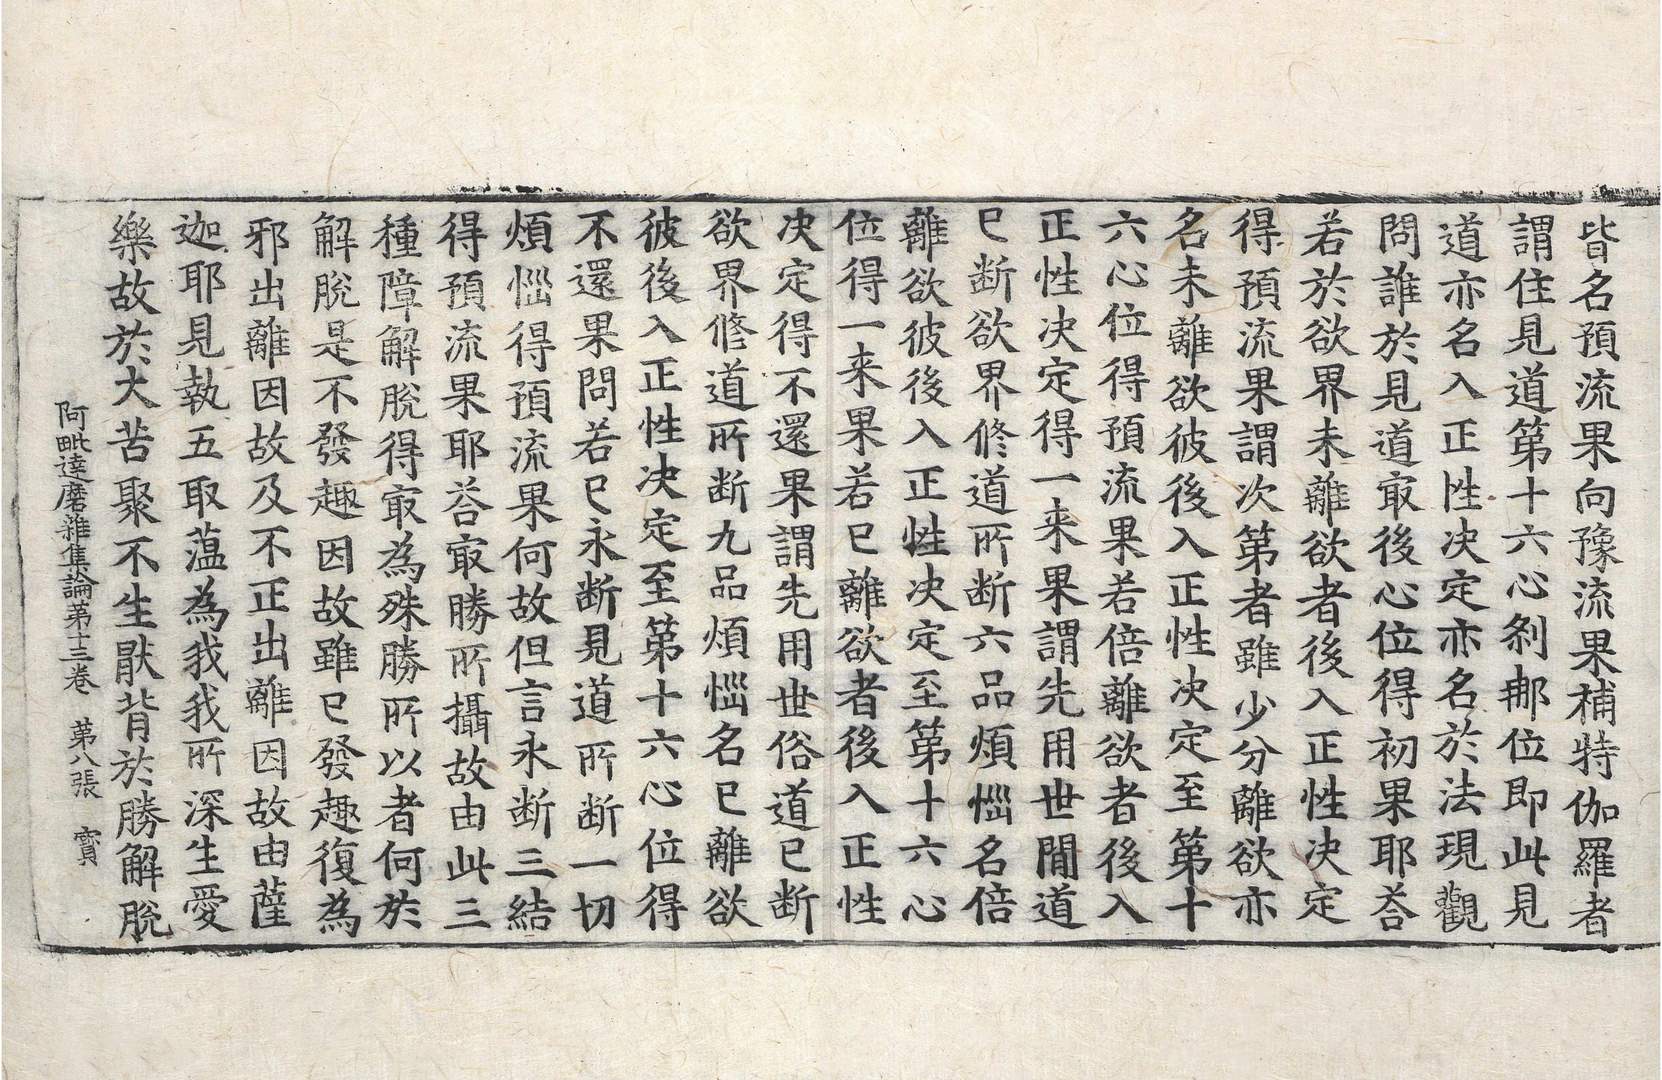 皆名預流果向豫流果補特伽羅者
謂住見道第十六心剎那位即此見
道亦名入正性決定亦名於法現觀
問誰於見道㝡後心位得初果耶荅
若於欲界未離欲者後入正性決定
得預流果謂次第者雖少分離欲亦
名未離欲彼後入正性決定至第十
六心位得預流果若倍離欲者後入
正性決定得一来果謂先用世閒道
已断欲界修道所断六品煩惱名倍
離欲彼後入正性決定至第十六心
位得一来果若已離欲者後入正性
決定得不還果謂先用世俗道已断
欲界修道所断九品煩惱名已離欲
彼後入正性決定至第十六心位得
不還果問若已永断見道所断一切
煩惱得預流果何故但言永断三結
得預流果耶荅㝡勝所攝故由此三
種障解脫得㝡為殊勝所以者何於
解脫是不發趣因故雖已發趣復為
邪出離因故及不正出離因故由薩
迦耶見執五取蕰為我我所深生愛
樂故於大苦聚不生猒背於勝解脫
阿毗達磨雜集論第十三卷 第八張 賓